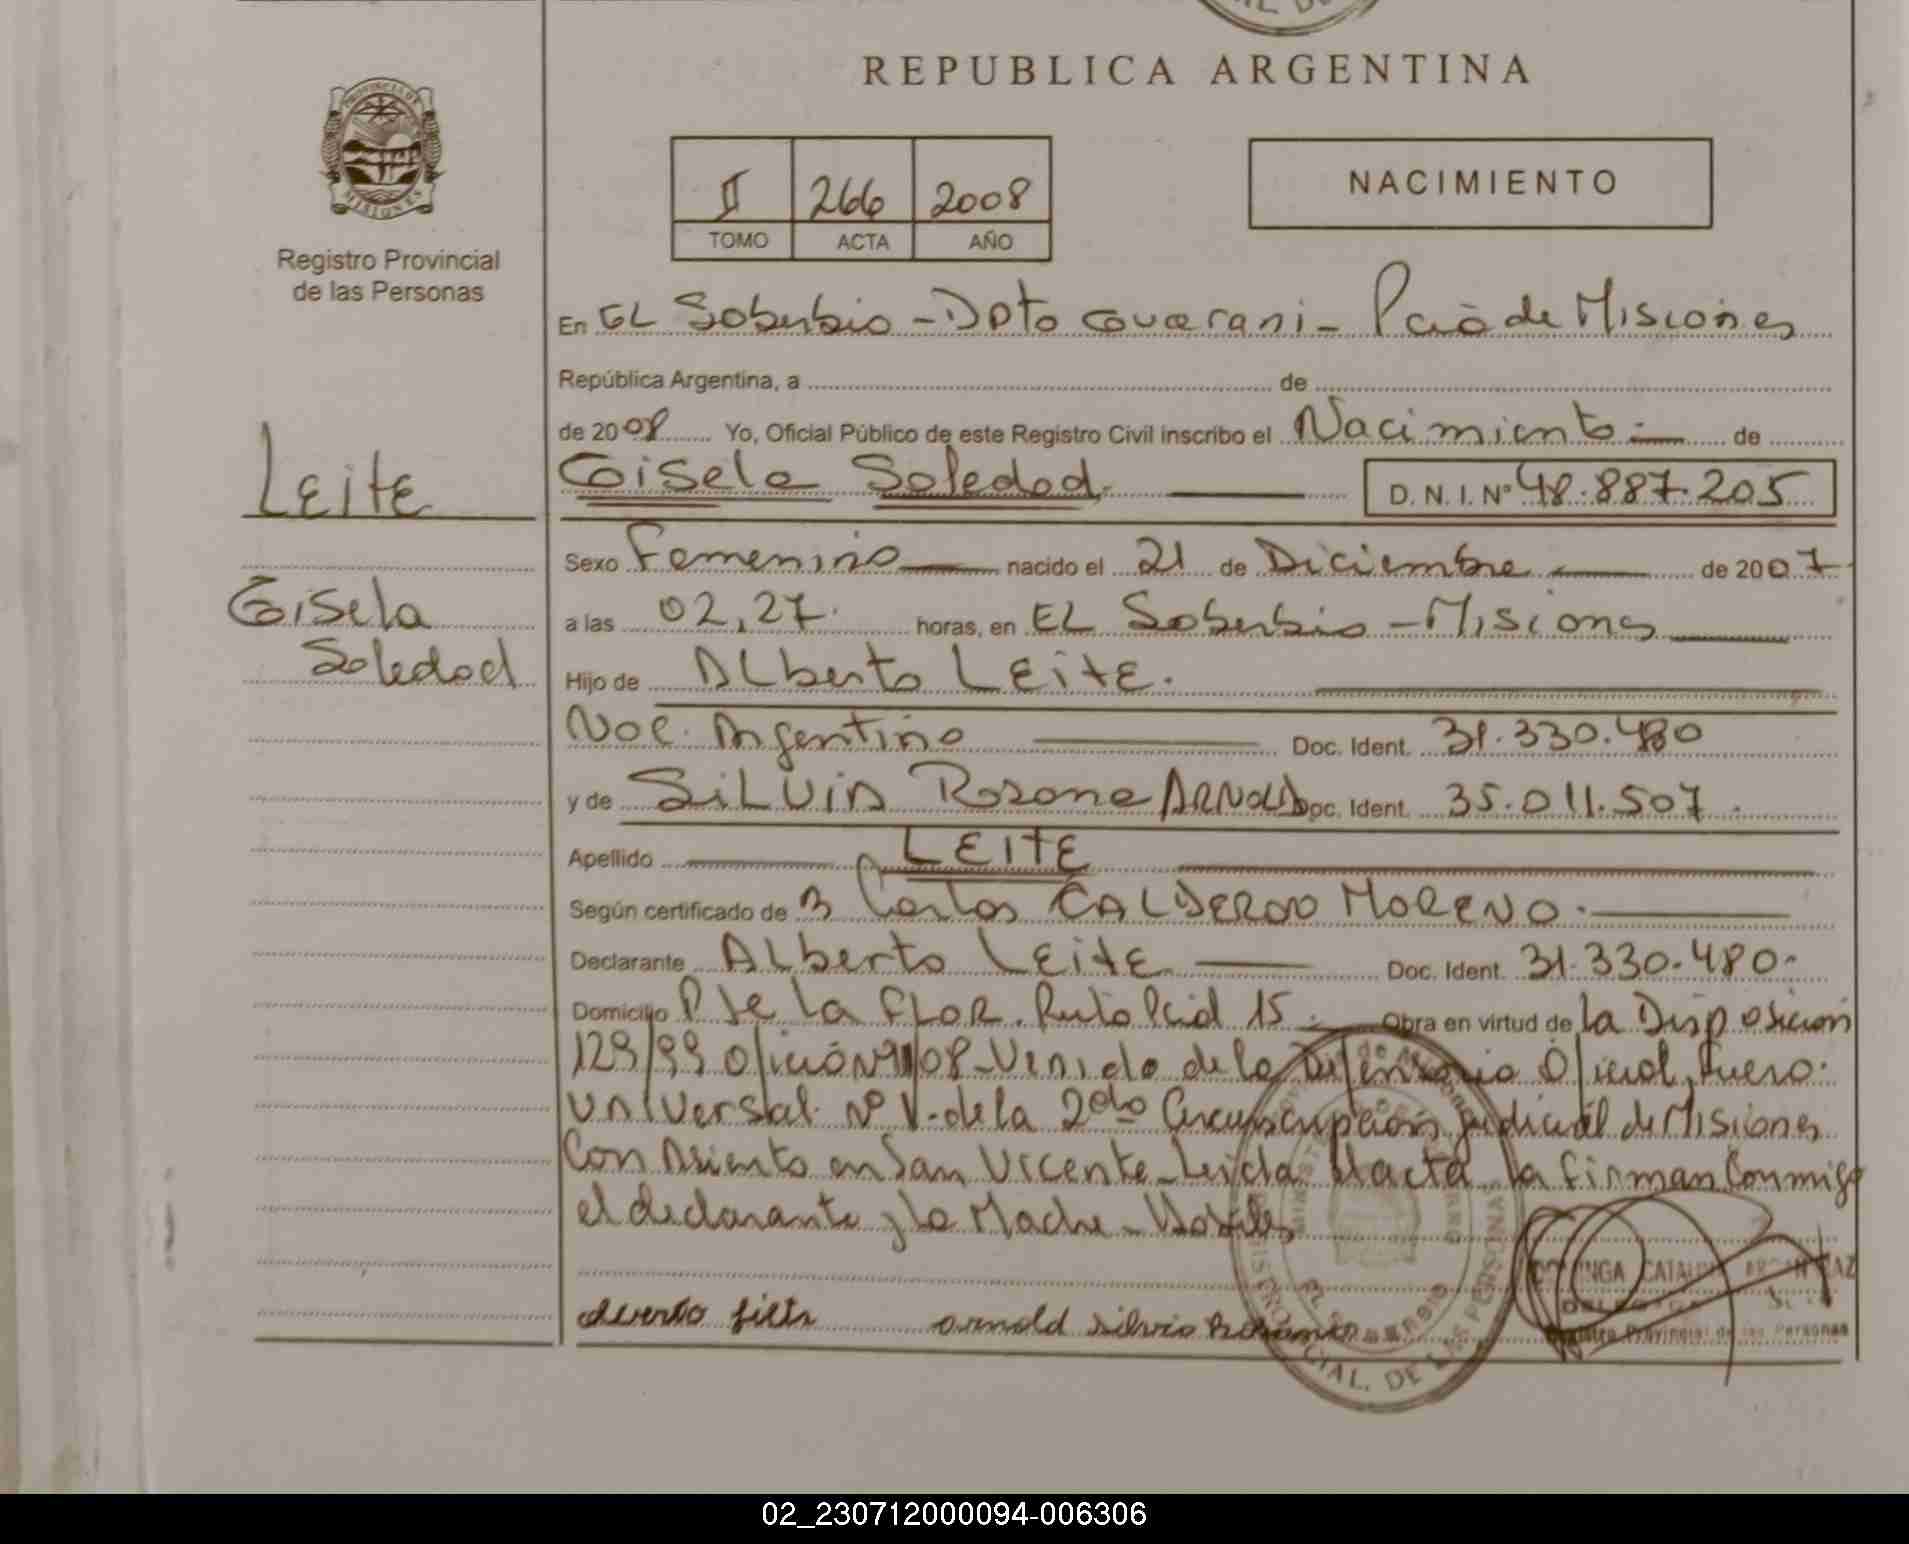 REPUBLICA ARGENTINA
PROVINCIA DE
MISIONES
Registro Provincial
de las Personas
II 266 2008
TOMO ACTA AÑO
NACIMIENTO
En EL Soberbio - Dpto Guarani - Pcia de Misiones
República Argentina, a de
de 2008 Yo, Oficial Público de este Registro Civil inscribo el Nacimiento de
Leite
Gisela Soledad. D. N. I. Nº 48.887.205
Sexo Femenino nacido el 21 de Diciembre de 2007
Gisela
Soledad
a las 02,27. horas, en EL Soberbio - Misiones
Hijo de ALberto LEitE.
Nac. Argentino Doc. Ident. 31.330.480
y de SiLViA Rosana ARNOLD Doc. Ident. 35.011.507.
Apellido LEITE
Según certificado de Carlos CALDERON MORENO.
Declarante ALberto LEitE Doc. Ident. 31.330.480.
Domicilio P. de La FLOR. Ruta Pcial 15. Obra en virtud de la Disposición
129/99 Oficio Nº /08 - Venido de la Defensoria Oficial Fuero
Universal Nº V. de la 2da Circunscripción judicial de Misiones
Con Asiento en San Vicente - Leida el acta la firman Conmigo
el declarante y la Madre -
arnold silvia Rosana
DOMINGA CATALINA
Registro Provincial de las Personas
EL SOBERBIO
02_230712000094-006306